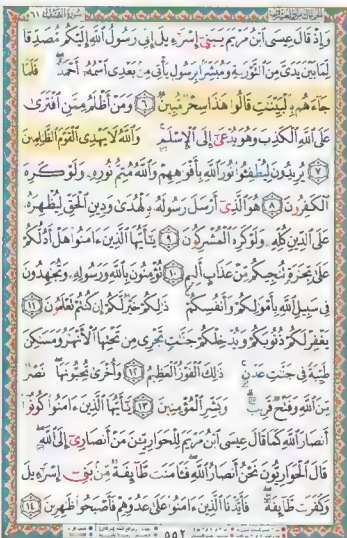 سورة الصف ٦١
وَإِذْ قَالَ عِيسَى ابْنُ مَرْيَمَ يَٰبَنِىٓ إِسْرَٰٓءِيلَ إِنِّى رَسُولُ ٱللَّهِ إِلَيْكُم مُّصَدِّقًا
لِّمَا بَيْنَ يَدَىَّ مِنَ ٱلتَّوْرَىٰةِ وَمُبَشِّرًۢا بِرَسُولٍ يَأْتِى مِنۢ بَعْدِى ٱسْمُهُۥٓ أَحْمَدُ ۖ فَلَمَّا
جَآءَهُم بِٱلْبَيِّنَٰتِ قَالُوا۟ هَٰذَا سِحْرٌ مُّبِينٌ ٦ وَمَنْ أَظْلَمُ مِمَّنِ ٱفْتَرَىٰ
عَلَى ٱللَّهِ ٱلْكَذِبَ وَهُوَ يُدْعَىٰٓ إِلَى ٱلْإِسْلَٰمِ ۚ وَٱللَّهُ لَا يَهْدِى ٱلْقَوْمَ ٱلظَّٰلِمِينَ
٧ يُرِيدُونَ لِيُطْفِـُٔوا۟ نُورَ ٱللَّهِ بِأَفْوَٰهِهِمْ وَٱللَّهُ مُتِمُّ نُورِهِۦ وَلَوْ كَرِهَ
ٱلْكَٰفِرُونَ ٨ هُوَ ٱلَّذِىٓ أَرْسَلَ رَسُولَهُۥ بِٱلْهُدَىٰ وَدِينِ ٱلْحَقِّ لِيُظْهِرَهُۥ
عَلَى ٱلدِّينِ كُلِّهِۦ وَلَوْ كَرِهَ ٱلْمُشْرِكُونَ ٩ يَٰٓأَيُّهَا ٱلَّذِينَ ءَامَنُوا۟ هَلْ أَدُلُّكُمْ
عَلَىٰ تِجَٰرَةٍ تُنجِيكُم مِّنْ عَذَابٍ أَلِيمٍ ١٠ تُؤْمِنُونَ بِٱللَّهِ وَرَسُولِهِۦ وَتُجَٰهِدُونَ
فِى سَبِيلِ ٱللَّهِ بِأَمْوَٰلِكُمْ وَأَنفُسِكُمْ ۚ ذَٰلِكُمْ خَيْرٌ لَّكُمْ إِن كُنتُمْ تَعْلَمُونَ ١١
يَغْفِرْ لَكُمْ ذُنُوبَكُمْ وَيُدْخِلْكُمْ جَنَّٰتٍ تَجْرِى مِن تَحْتِهَا ٱلْأَنْهَٰرُ وَمَسَٰكِنَ
طَيِّبَةً فِى جَنَّٰتِ عَدْنٍ ۚ ذَٰلِكَ ٱلْفَوْزُ ٱلْعَظِيمُ ١٢ وَأُخْرَىٰ تُحِبُّونَهَا ۖ نَصْرٌ
مِّنَ ٱللَّهِ وَفَتْحٌ قَرِيبٌ ۗ وَبَشِّرِ ٱلْمُؤْمِنِينَ ١٣ يَٰٓأَيُّهَا ٱلَّذِينَ ءَامَنُوا۟ كُونُوٓا۟
أَنصَارَ ٱللَّهِ كَمَا قَالَ عِيسَى ٱبْنُ مَرْيَمَ لِلْحَوَارِيِّـۧنَ مَنْ أَنصَارِىٓ إِلَى ٱللَّهِ ۖ
قَالَ ٱلْحَوَارِيُّونَ نَحْنُ أَنصَارُ ٱللَّهِ ۖ فَـَٔامَنَت طَّآئِفَةٌ مِّنۢ بَنِىٓ إِسْرَٰٓءِيلَ
وَكَفَرَت طَّآئِفَةٌ ۖ فَأَيَّدْنَا ٱلَّذِينَ ءَامَنُوا۟ عَلَىٰ عَدُوِّهِمْ فَأَصْبَحُوا۟ ظَٰهِرِينَ ١٤
٥٥٢